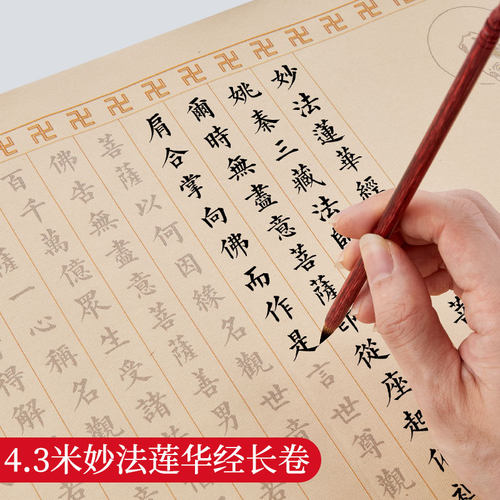 妙法蓮華經
菩
姚秦三藏法師
爾時無盡意菩薩即從座起偏
肩合掌向佛而作是言世尊觀
菩薩以何因緣名觀
佛告無盡意菩薩善男
百千萬億眾生受諸
薩一心稱名
得解
4.3米妙法莲华经长卷